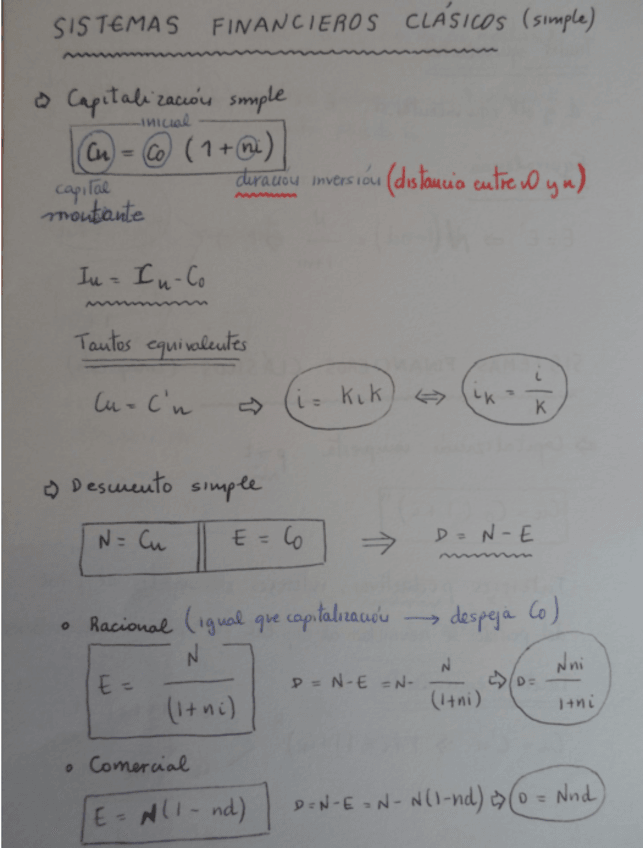 SISTEMAS FINANCIEROS CLÁSICOS (simple)
⇨ Capitalización simple
inicial
Cn = Co (1 + ni)
capital
montante
duración inversión (distancia entre 0 y n)
In = In - Co
Tantos equivalentes
Cn = C'n ⇨ i = kik ⇔ ik = i/k
⇨ Descuento simple
N = Cn || E = Co ⇒ D = N - E
• Racional (igual que capitalización → despeja Co)
E = N/(1+ni) D = N-E = N - N/(1+ni) ⇨ D = Nni/1+ni
• Comercial
E = N(1 - nd) D = N-E = N - N(1-nd) ⇨ D = Nnd